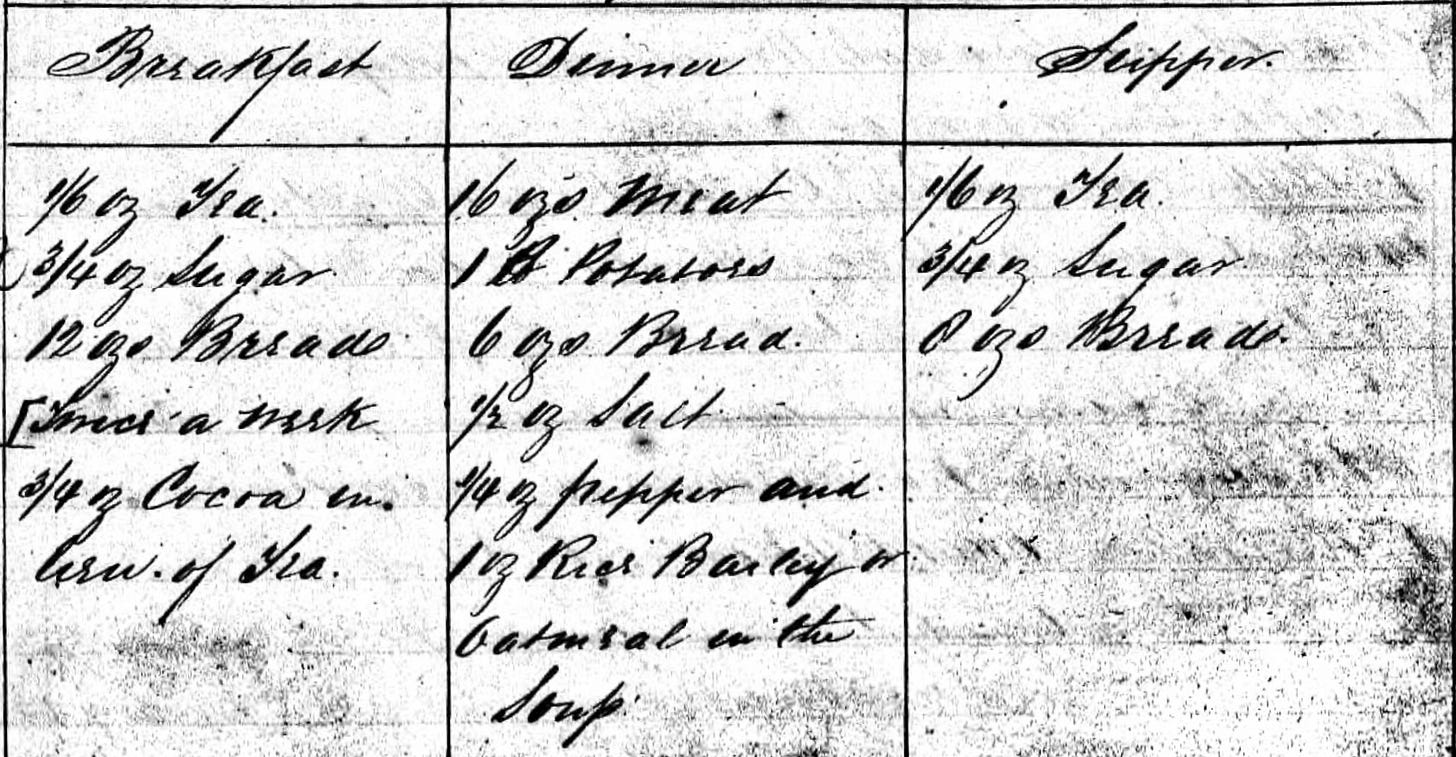 Breakfast
1/6 oz Tea.
3/4 oz Sugar
12 ozs Bread
[Twice a week
3/4 oz Cocoa in
lieu of Tea.
Dinner
16 ozs Meat
1 lb Potatoes
6 ozs Bread.
1/2 oz Salt
1/4 oz pepper and
1 oz Rice Barley or
Oatmeal in the
Soup
Supper.
1/6 oz Tea.
3/4 oz Sugar
8 ozs Bread.